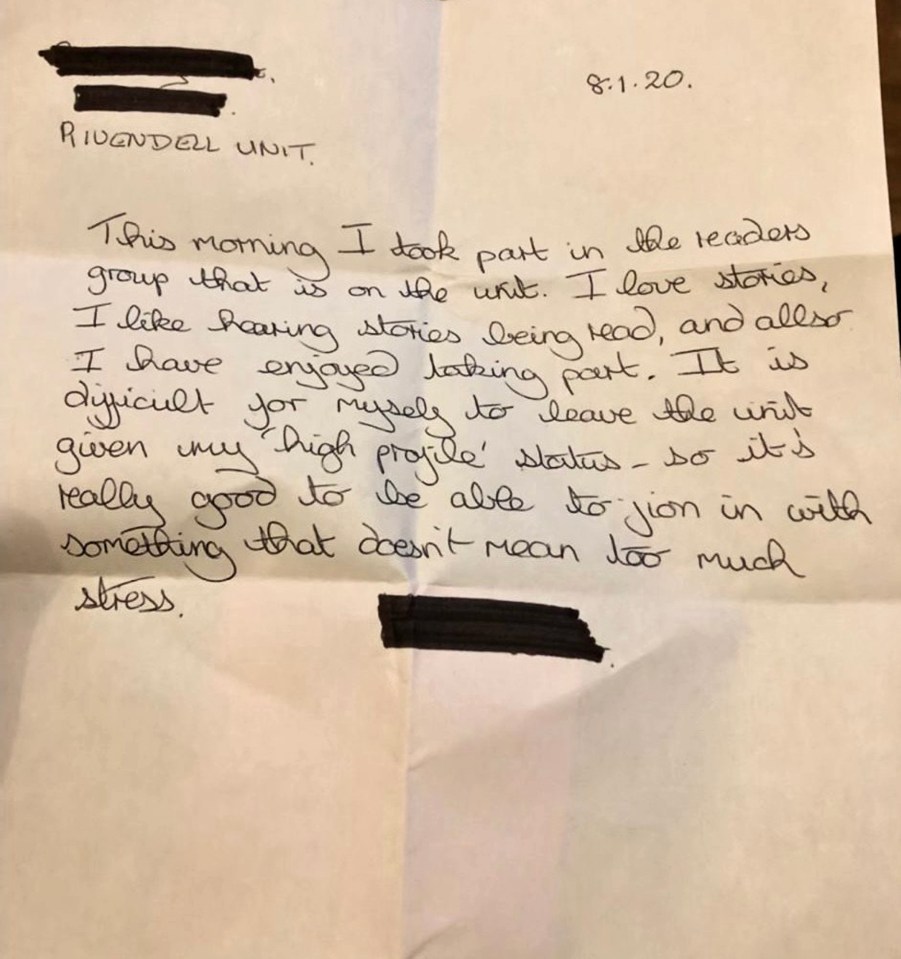 8.1.20.
RIVENDELL UNIT.
This morning I took part in the readers
group that is on the unit. I love stories,
I like hearing stories being read, and allso
I have enjoyed taking part. It is
difficult for myself to leave the unit
given my 'high profile' status - so it's
really good to be able to jion in with
something that doesn't mean too much
stress.